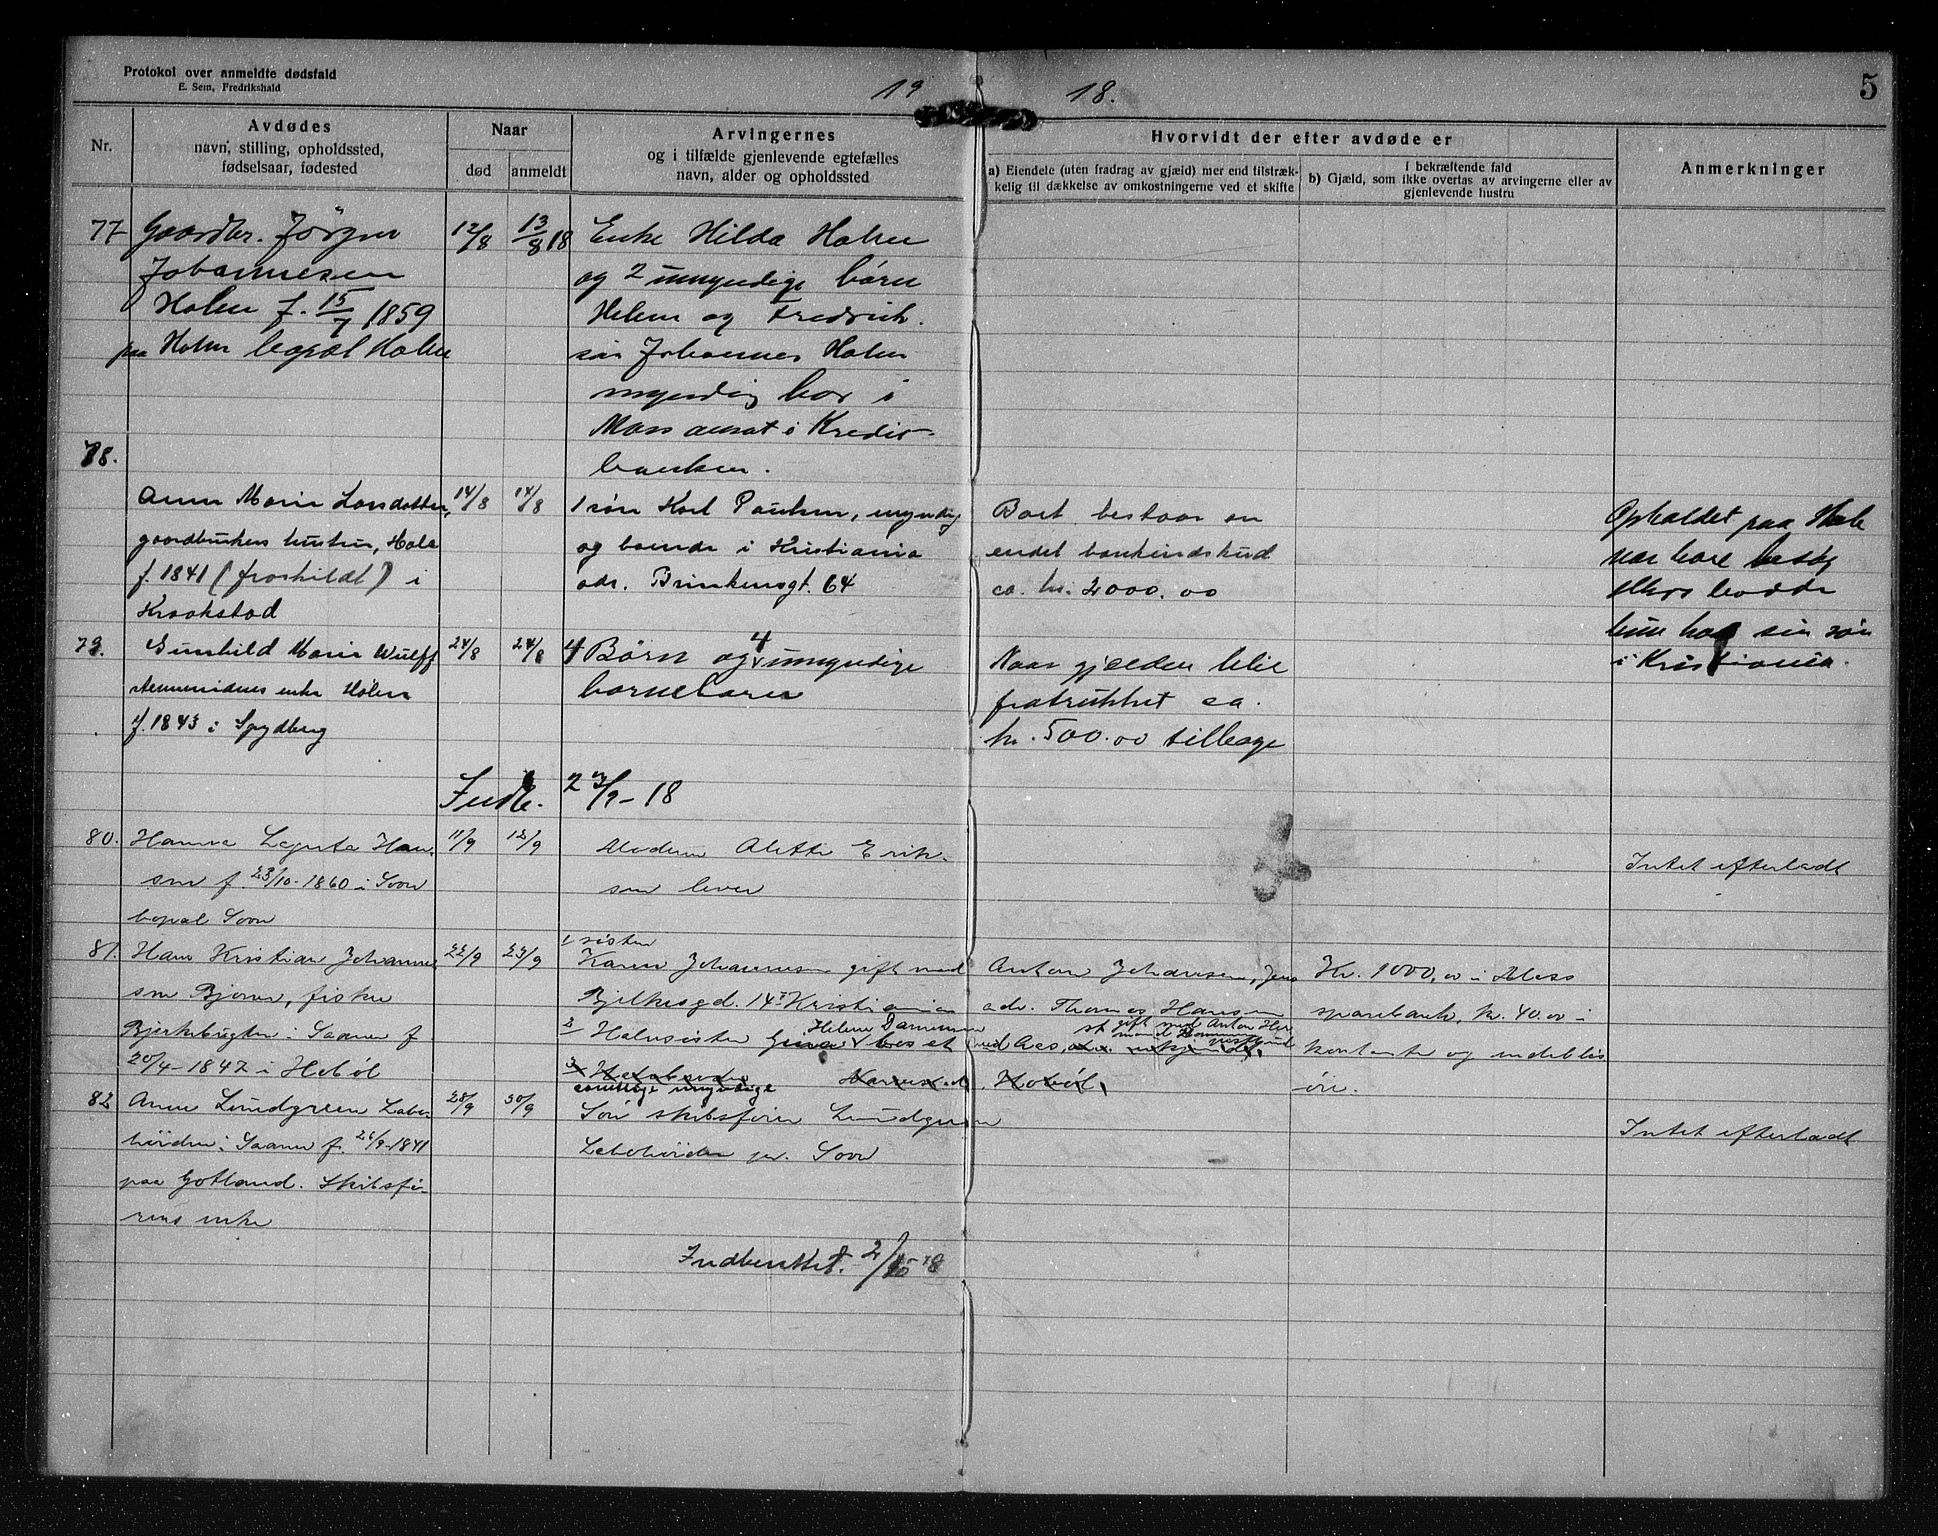 Protokol over anmeldte dødsfald
E. Sem, Fredrikshald
19 18.
5
Nr.
Avdødes
navn, stilling, opholdssted,
fødselsaar, fødested
Naar
død
anmeldt
Arvingernes
og i tilfælde gjenlevende egtefælles
navn, alder og opholdssted
Hvorvidt der efter avdøde er
a) Eiendele (uten fradrag av gjæld) mer end tilstræk-
kelig til dækkelse av omkostningerne ved et skifte
i bekræftende fald
b) Gjæld, som ikke overtas av arvingerne eller av
gjenlevende hustru
Anmerkninger
77
Gaardbr. Jörgen
Johannesen
Holen f. 15/7 1859
paa Holen bopæl Holen
12/8
13/8 18
Enke Hilda Holen
og 2 umyndige börn
Helene og Fredrik.
sön Johannes Holen
myndig bor i
Moss ansat i Kredit-
banken.
78.
Anne Marie Larsdatter,
gaardbrukers hustru, Hole
f. 1841 (fraskildt) i
Kraakstad
14/8
14/8
1 sön Karl Paulsen, myndig
og boende i Kristiania
adr. Brinkensgt. 64
Boet bestaar en
endel bankindskud
ca. kr. 2000.00
Opholdet paa Hole
var bare besög
ellers bodde
hun hos sin sön
i Kristiania.
79.
Gunhild Marie Wulff
enke Holen
f. 1843 i Spydberg
24/8
24/8
4 Börn og 4 umyndige
barnebarn
Naar gjælden blir
fratrukket ca.
kr. 500.00 tilbage
Indb. 2/9-18
80.
Hanna Han-
sen f. 23/10-1860 i Soon
bopæl Soon
11/9
12/9
Moderen Alette Erik-
sen lever
Intet efterladt
81.
Hans Kristian Johannes
sen Bjørnr, fisker
Bjerkebugten i Saaner f
20/4-1847 i Hobøl
22/9
23/9
1 söster
Karen Johannesen gift med
Anton Johansen, Jens
Bjelkesgd. 14 Kristiania
adr. Thomas Hansen
2 Halvsöster Helene
bos et ved Aas,
gift med Anton Her
3
samtlige myndige
Hobøl
Kr. 1000,00 i Moss
sparebank, kr. 40.00 i
kontanter og indebl
82
Anne Lundgreen Labo
höiden i Saaner f. 1841
paa Gotland. Skibsfö-
rers enke
28/9
30/9
Sön skibsförer Lundgreen
Labohöiden pr. Soon
Intet efterladt
Indberettet. 2/10 18